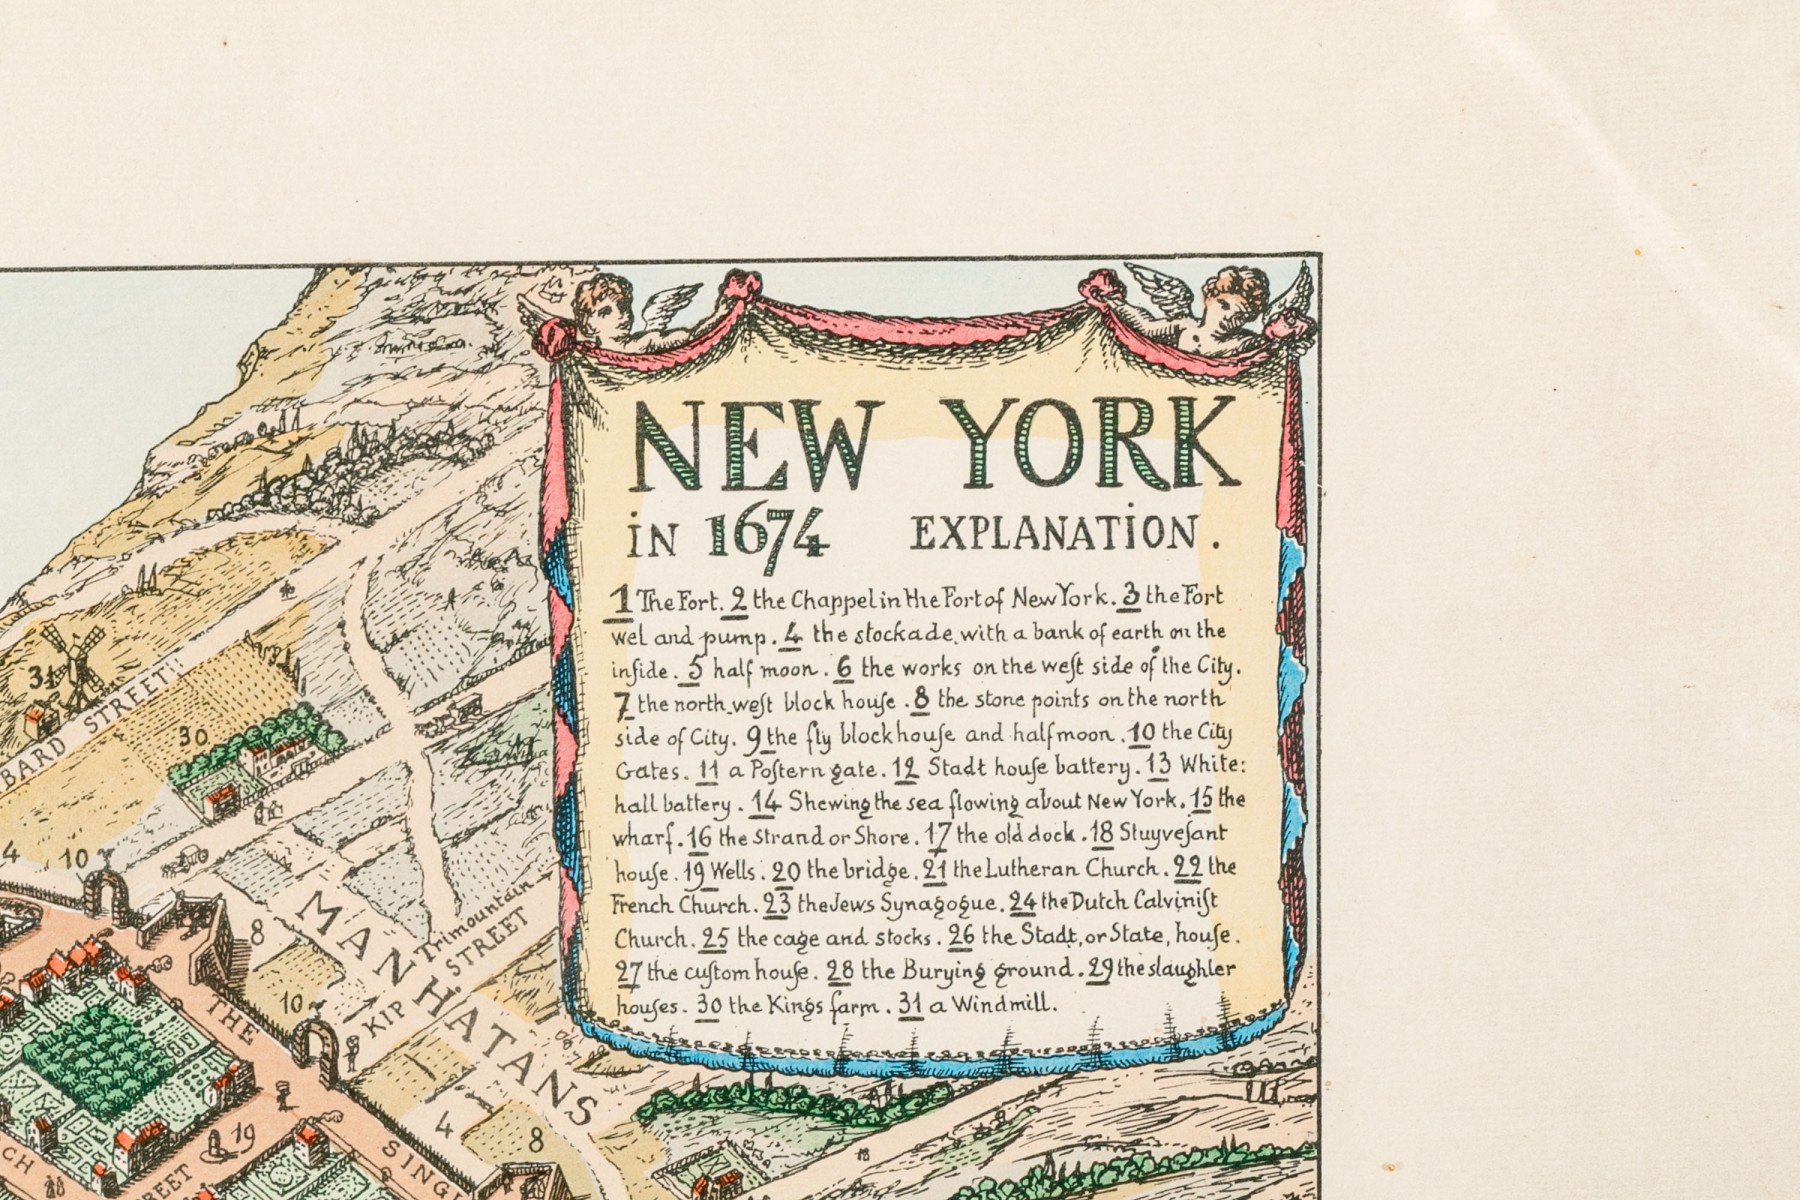 NEW YORK
in 1674 EXPLANATION.
1 The Fort. 2 the Chappel in the Fort of New York. 3 the Fort
wel and pump. 4 the stockade, with a bank of earth on the
inſide. 5 half moon. 6 the works on the weſt side of the City.
7 the north weſt block houſe. 8 the stone points on the north
side of City. 9 the fly blockhouſe and halfmoon. 10 the City
Gates. 11 a Poſtern gate. 12 Stadt house battery. 13 White:
hall battery. 14 Shewing the sea flowing about New York. 15 the
wharf. 16 the strand or Shore. 17 the old dock. 18 Stuyveſant
houſe. 19 Wells. 20 the bridge. 21 the Lutheran Church. 22 the
French Church. 23 the Jews Synagogue. 24 the Dutch Calviniſt
Church. 25 the cage and stocks. 26 the Stadt, or State, houſe.
27 the cuſtom houſe. 28 the Burying ground. 29 the slaughter
houſes. 30 the Kings farm. 31 a Windmill.
31
BARD STREET
30
4
10
8
MANHATANS
Trimountain
STREET
THE
10
KIP
4
8
19
SING
CH
REET